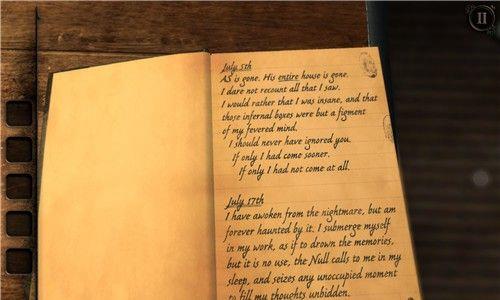 II
July 5th
AS is gone. His entire house is gone.
I dare not recount all that I saw.
I would rather that I was insane, and that
those infernal boxes were but a figment
of my fevered mind.
I should never have ignored you.
If only I had come sooner.
If only I had not come at all.
July 17th
I have awoken from the nightmare, but am
forever haunted by it. I submerge myself
in my work, as if to drown the memories,
but it is no use, the Null calls to me in my
sleep, and seizes any unoccupied moment
to fill my thoughts unbidden.